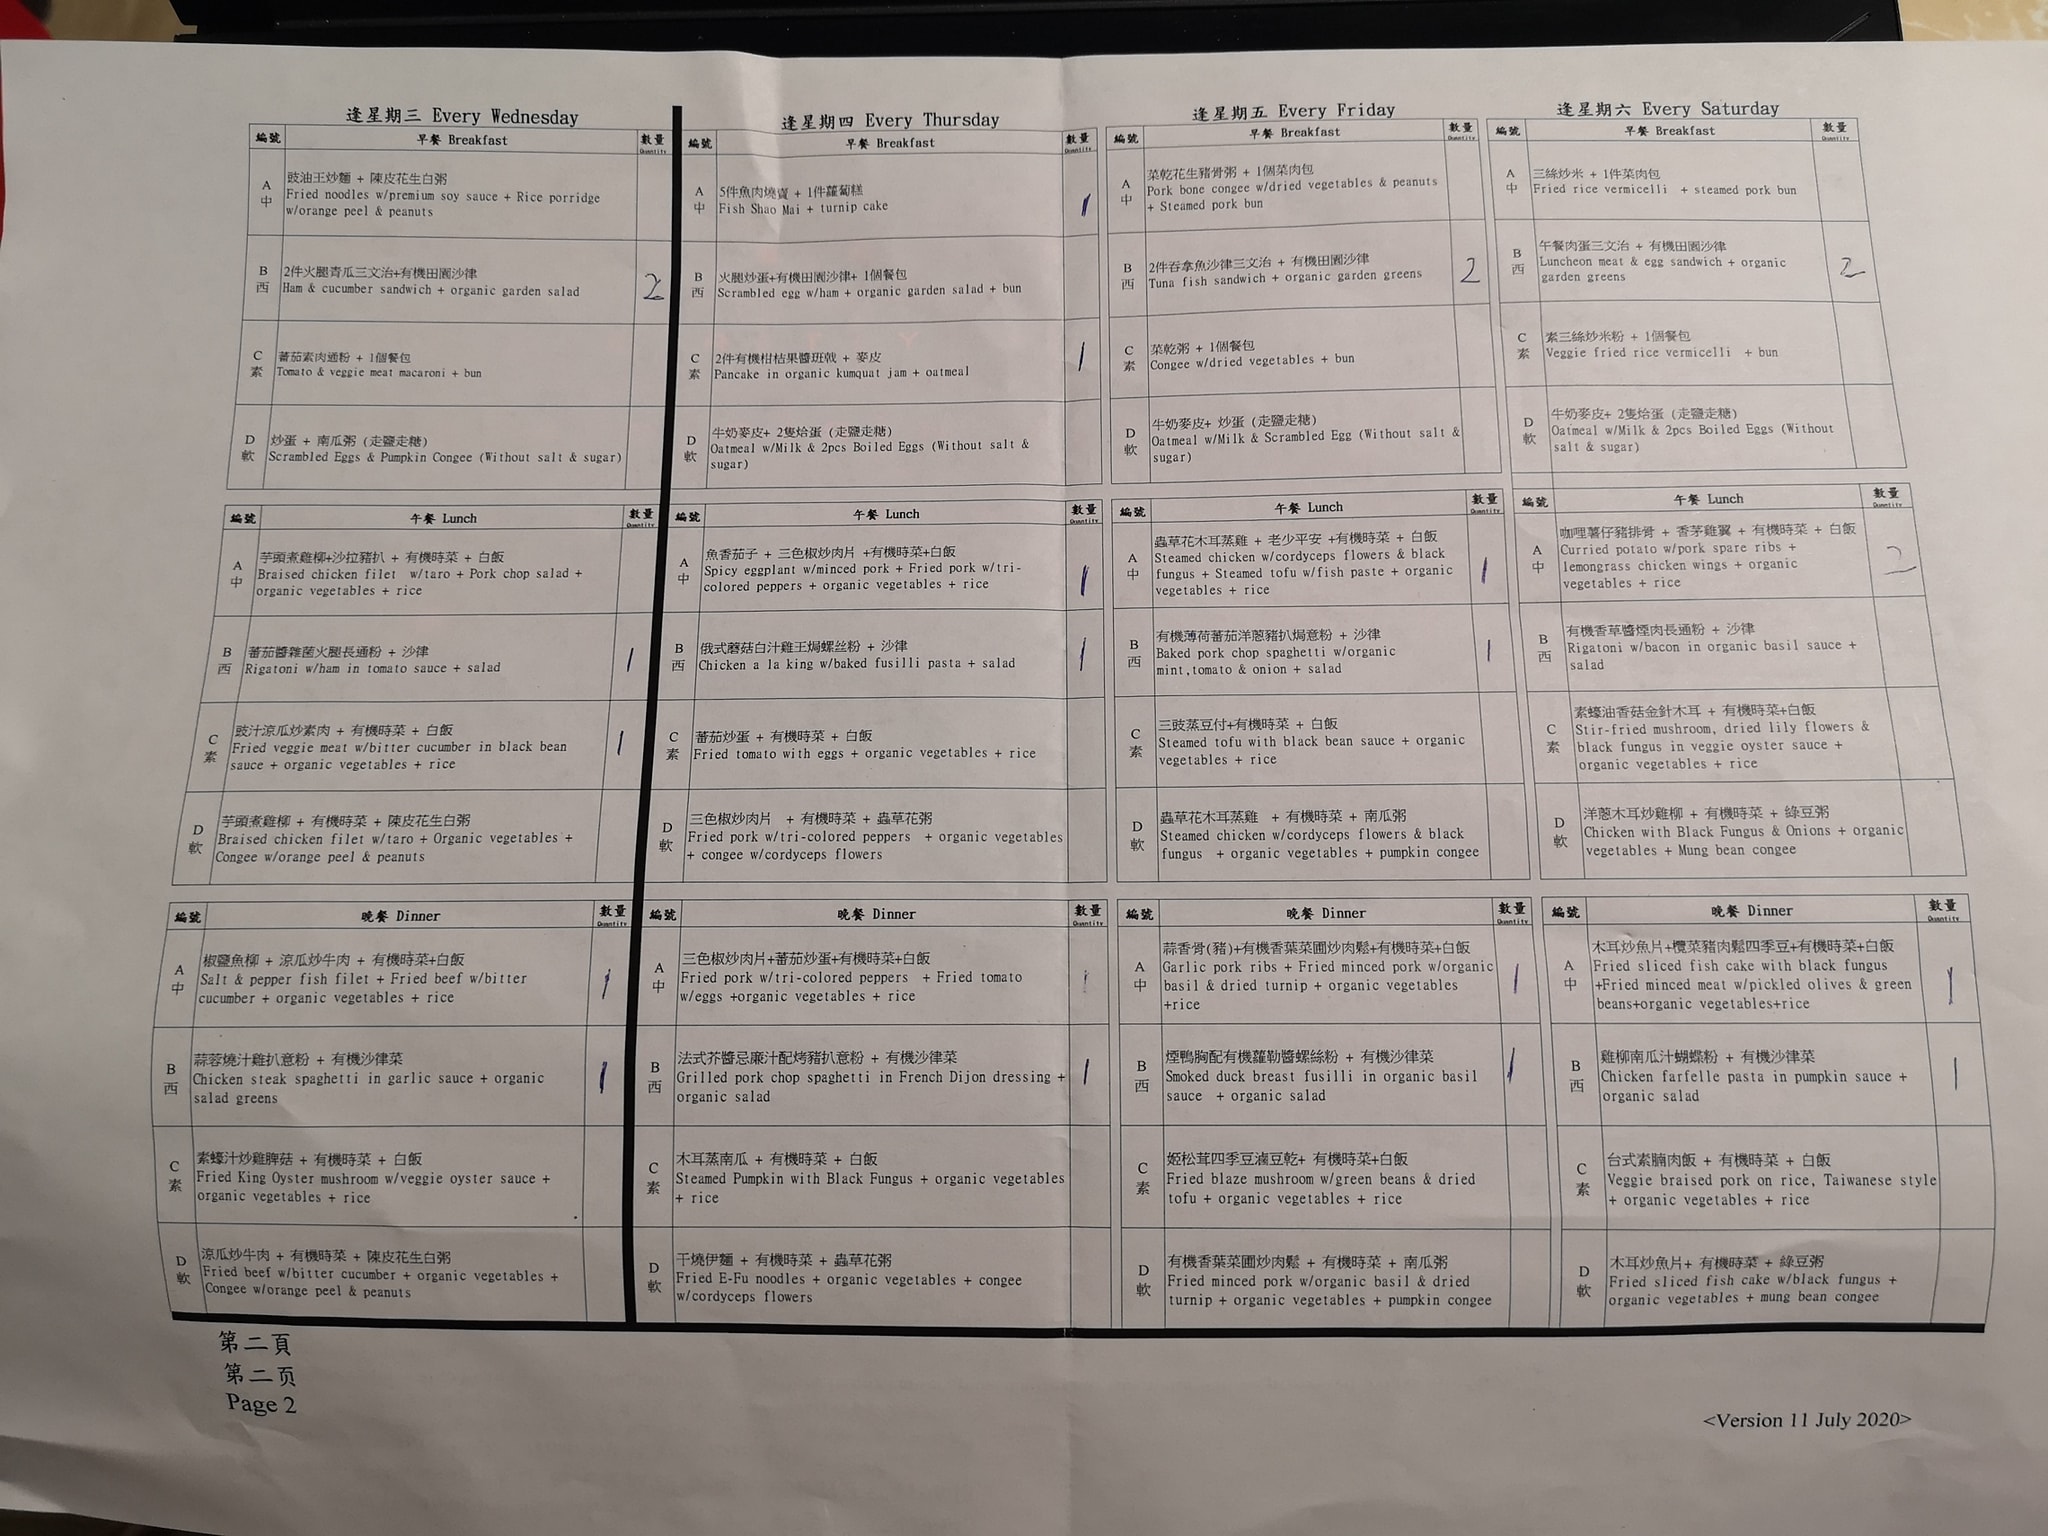 逢星期三 Every Wednesday
編號 早餐 Breakfast 數量 Quantity
A 中
豉油王炒麵 + 陳皮花生白粥
Fried noodles w/premium soy sauce + Rice porridge
w/orange peel & peanuts
B 西
2件火腿青瓜三文治+有機田園沙律
Ham & cucumber sandwich + organic garden salad
2
C 素
蕃茄素肉通粉 + 1個餐包
Tomato & veggie meat macaroni + bun
D 軟
炒蛋 + 南瓜粥 (走鹽走糖)
Scrambled Eggs & Pumpkin Congee (Without salt & sugar)
編號 午餐 Lunch 數量 Quantity
A 中
芋頭煮雞柳+沙拉豬扒 + 有機時菜 + 白飯
Braised chicken filet w/taro + Pork chop salad +
organic vegetables + rice
B 西
蕃茄醬雜菌火腿長通粉 + 沙律
Rigatoni w/ham in tomato sauce + salad
1
C 素
豉汁涼瓜炒素肉 + 有機時菜 + 白飯
Fried veggie meat w/bitter cucumber in black bean
sauce + organic vegetables + rice
1
D 軟
芋頭煮雞柳 + 有機時菜 + 陳皮花生白粥
Braised chicken filet w/taro + Organic vegetables +
Congee w/orange peel & peanuts
編號 晚餐 Dinner 數量 Quantity
A 中
椒鹽魚柳 + 涼瓜炒牛肉 + 有機時菜+白飯
Salt & pepper fish filet + Fried beef w/bitter
cucumber + organic vegetables + rice
1
B 西
蒜蓉燒汁雞扒意粉 + 有機沙律菜
Chicken steak spaghetti in garlic sauce + organic
salad greens
1
C 素
素蠔汁炒雞脾菇 + 有機時菜 + 白飯
Fried King Oyster mushroom w/veggie oyster sauce +
organic vegetables + rice
D 軟
涼瓜炒牛肉 + 有機時菜 + 陳皮花生白粥
Fried beef w/bitter cucumber + organic vegetables +
Congee w/orange peel & peanuts
逢星期四 Every Thursday
編號 早餐 Breakfast 數量 Quantity
A 中
5件魚肉燒賣 + 1件蘿蔔糕
Fish Shao Mai + turnip cake
1
B 西
火腿炒蛋+有機田園沙律+ 1個餐包
Scrambled egg w/ham + organic garden salad + bun
C 素
2件有機柑桔果醬班戟 + 麥皮
Pancake in organic kumquat jam + oatmeal
1
D 軟
牛奶麥皮+ 2隻烚蛋 (走鹽走糖)
Oatmeal w/Milk & 2pcs Boiled Eggs (Without salt &
sugar)
編號 午餐 Lunch 數量 Quantity
A 中
魚香茄子 + 三色椒炒肉片 +有機時菜+白飯
Spicy eggplant w/minced pork + Fried pork w/tri-
colored peppers + organic vegetables + rice
1
B 西
俄式蘑菇白汁雞王焗螺丝粉 + 沙律
Chicken a la king w/baked fusilli pasta + salad
1
C 素
蕃茄炒蛋 + 有機時菜 + 白飯
Fried tomato with eggs + organic vegetables + rice
D 軟
三色椒炒肉片 + 有機時菜 + 蟲草花粥
Fried pork w/tri-colored peppers + organic vegetables
+ congee w/cordyceps flowers
編號 晚餐 Dinner 數量 Quantity
A 中
三色椒炒肉片+蕃茄炒蛋+有機時菜+白飯
Fried pork w/tri-colored peppers + Fried tomato
w/eggs +organic vegetables + rice
1
B 西
法式芥醬忌廉汁配烤豬扒意粉 + 有機沙律菜
Grilled pork chop spaghetti in French Dijon dressing +
organic salad
1
C 素
木耳蒸南瓜 + 有機時菜 + 白飯
Steamed Pumpkin with Black Fungus + organic vegetables
+ rice
D 軟
干燒伊麵 + 有機時菜 + 蟲草花粥
Fried E-Fu noodles + organic vegetables + congee
w/cordyceps flowers
逢星期五 Every Friday
編號 早餐 Breakfast 數量 Quantity
A 中
菜乾花生豬骨粥 + 1個菜肉包
Pork bone congee w/dried vegetables & peanuts
+ Steamed pork bun
B 西
2件吞拿魚沙律三文治 + 有機田園沙律
Tuna fish sandwich + organic garden greens
2
C 素
菜乾粥 + 1個餐包
Congee w/dried vegetables + bun
D 軟
牛奶麥皮+ 炒蛋 (走鹽走糖)
Oatmeal w/Milk & Scrambled Egg (Without salt &
sugar)
編號 午餐 Lunch 數量 Quantity
A 中
蟲草花木耳蒸雞 + 老少平安 +有機時菜 + 白飯
Steamed chicken w/cordyceps flowers & black
fungus + Steamed tofu w/fish paste + organic
vegetables + rice
1
B 西
有機薄荷蕃茄洋蔥豬扒焗意粉 + 沙律
Baked pork chop spaghetti w/organic
mint,tomato & onion + salad
1
C 素
三豉蒸豆付+有機時菜 + 白飯
Steamed tofu with black bean sauce + organic
vegetables + rice
D 軟
蟲草花木耳蒸雞 + 有機時菜 + 南瓜粥
Steamed chicken w/cordyceps flowers & black
fungus + organic vegetables + pumpkin congee
編號 晚餐 Dinner 數量 Quantity
A 中
蒜香骨(豬)+有機香葉菜圃炒肉鬆+有機時菜+白飯
Garlic pork ribs + Fried minced pork w/organic
basil & dried turnip + organic vegetables
+rice
1
B 西
煙鴨胸配有機蘿勒醬螺絲粉 + 有機沙律菜
Smoked duck breast fusilli in organic basil
sauce + organic salad
1
C 素
姬松茸四季豆滷豆乾+ 有機時菜+白飯
Fried blaze mushroom w/green beans & dried
tofu + organic vegetables + rice
D 軟
有機香葉菜圃炒肉鬆 + 有機時菜 + 南瓜粥
Fried minced pork w/organic basil & dried
turnip + organic vegetables + pumpkin congee
逢星期六 Every Saturday
編號 早餐 Breakfast 數量 Quantity
A 中
三絲炒米 + 1件菜肉包
Fried rice vermicelli + steamed pork bun
B 西
午餐肉蛋三文治 + 有機田園沙律
Luncheon meat & egg sandwich + organic
garden greens
2
C 素
素三絲炒米粉 + 1個餐包
Veggie fried rice vermicelli + bun
D 軟
牛奶麥皮+ 2隻烚蛋 (走鹽走糖)
Oatmeal w/Milk & 2pcs Boiled Eggs (Without
salt & sugar)
編號 午餐 Lunch 數量 Quantity
A 中
咖哩薯仔豬排骨 + 香茅雞翼 + 有機時菜 + 白飯
Curried potato w/pork spare ribs +
lemongrass chicken wings + organic
vegetables + rice
2
B 西
有機香草醬煙肉長通粉 + 沙律
Rigatoni w/bacon in organic basil sauce +
salad
C 素
素蠔油香菇金針木耳 + 有機時菜+白飯
Stir-fried mushroom, dried lily flowers &
black fungus in veggie oyster sauce +
organic vegetables + rice
D 軟
洋蔥木耳炒雞柳 + 有機時菜 + 綠豆粥
Chicken with Black Fungus & Onions + organic
vegetables + Mung bean congee
編號 晚餐 Dinner 數量 Quantity
A 中
木耳炒魚片+欖菜豬肉鬆四季豆+有機時菜+白飯
Fried sliced fish cake with black fungus
+Fried minced meat w/pickled olives & green
beans+organic vegetables+rice
1
B 西
雞柳南瓜汁蝴蝶粉 + 有機沙律菜
Chicken farfelle pasta in pumpkin sauce +
organic salad
1
C 素
台式素腩肉飯 + 有機時菜 + 白飯
Veggie braised pork on rice, Taiwanese style
+ organic vegetables + rice
D 軟
木耳炒魚片+ 有機時菜 + 綠豆粥
Fried sliced fish cake w/black fungus +
organic vegetables + mung bean congee
第二頁
第二页
Page 2
<Version 11 July 2020>